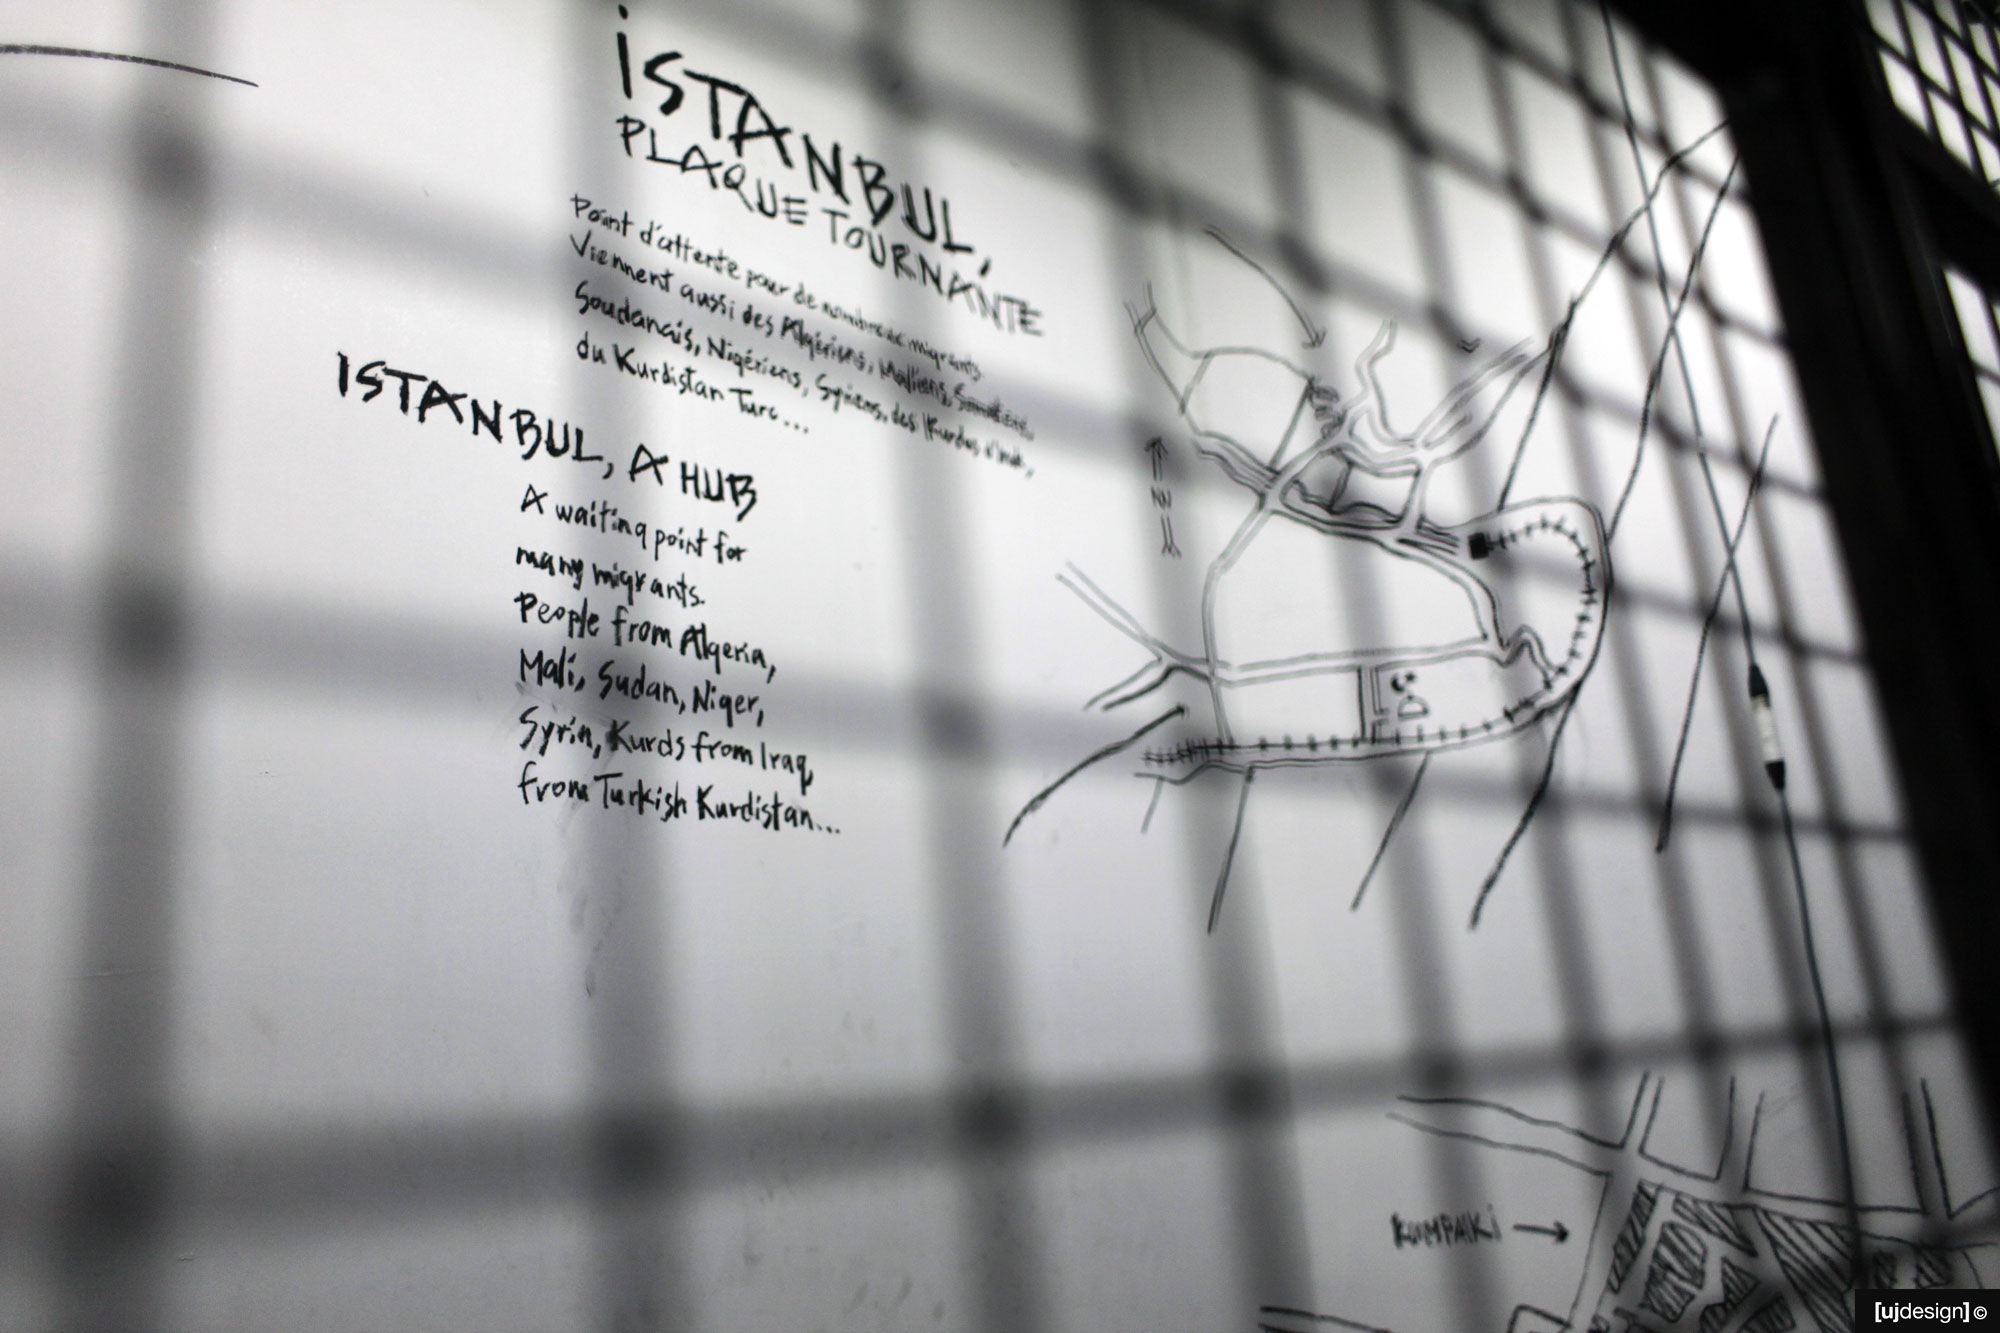 iSTANBUL,
PLAQUE TOURNANTE
Point d'attente pour de nombreux migrants.
Viennent aussi des Algériens, Maliens, Somaliens,
Soudanais, Nigériens, Syriens, des Kurdes d'Irak,
du Kurdistan Turc...
ISTANBUL, A HUB
A waiting point for
many migrants.
People from Algeria,
Mali, Sudan, Niger,
Syria, Kurds from Iraq,
from Turkish Kurdistan...
[ujdesign]©